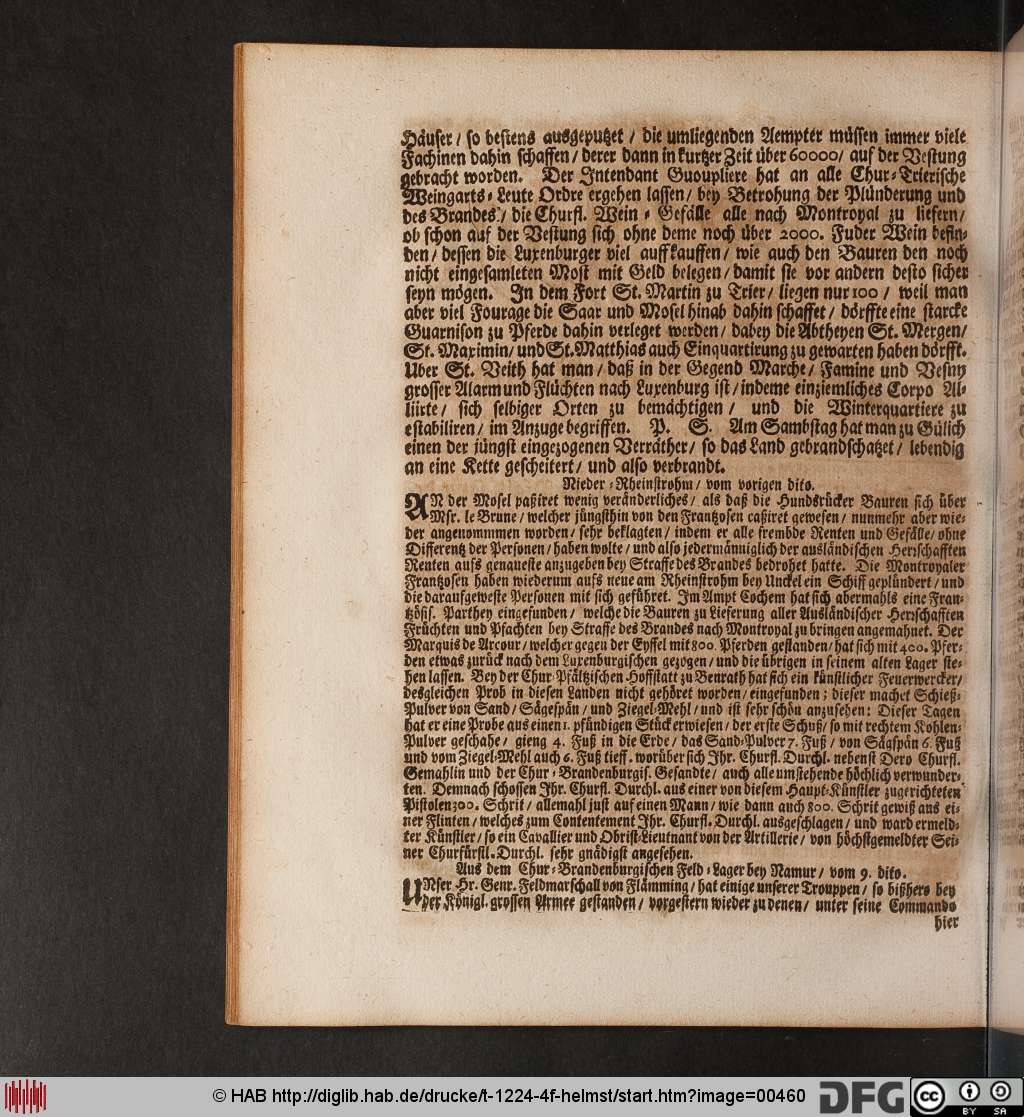 Häuser / so bestens ausgeputzet / die umliegenden Aempter müssen immer viele
Fachinen dahin schaffen / derer dann in kurtzer Zeit über 60000 / auf der Vestung
gebracht worden. Der Intendant Guoupliere hat an alle Chur-Trierische
Weingarts-Leute Ordre ergehen lassen / bey Betrohung der Plünderung und
des Brandes / die Churfl. Wein-Gefälle alle nach Montroyal zu liefern /
ob schon auf der Vestung sich ohne deme noch über 2000. Fuder Wein befin-
den / dessen die Luxenburger viel auffkauffen / wie auch den Bauren den noch
nicht eingesamleten Most mit Geld belegen / damit sie vor andern desto sicher
seyn mögen. In dem Fort St. Martin zu Trier / liegen nur 100 / weil man
aber viel Fourage die Saar und Mosel hinab dahin schaffet / dörffte eine starcke
Guarnison zu Pferde dahin verleget werden / dabey die Abtheyen St. Mergen /
St. Maximin / und St. Matthias auch Einquartirung zu gewarten haben dörfft.
Uber St. Veith hat man / daß in der Gegend Marche / Famine und Vesiny
grosser Alarm und Flüchten nach Luxenburg ist / indeme ein ziemliches Corpo Al-
liirte / sich selbiger Orten zu bemächtigen / und die Winterquartiere zu
estabiliren / im Anzuge begriffen. P. S. Am Sambstag hat man zu Gülich
einen der jüngst eingezogenen Verräther / so das Land gebrandschatzet / lebendig
an eine Kette gescheitert / und also verbrandt.
Nieder-Rheinstrohm / vom vorigen dito.
AN der Mosel paßiret wenig veränderliches / als daß die Hundsrücker Bauren sich über
Msr. le Brune / welcher jüngsthin von den Frantzosen caßiret gewesen / nunmehr aber wie-
der angenommmen worden / sehr beklagten / indem er alle frembde Renten und Gefälle / ohne
Differentz der Personen / haben wolte / und also jedermänniglich der ausländischen Herrschafften
Renten aufs genaueste anzugeben bey Straffe des Brandes bedrohet hatte. Die Montroyaler
Frantzosen haben wiederum aufs neue am Rheinstrohm bey Unckel ein Schiff geplündert / und
die darauf geweste Personen mit sich geführet. Im Ampt Cochem hat sich abermahls eine Fran-
tzösis. Parthey eingefunden / welche die Bauren zu Lieferung aller Ausländischer Herrschafften
Früchten und Pfachten bey Straffe des Brandes nach Montroyal zu bringen angemahnet. Der
Marquis de Arcour / welcher gegen der Eyffel mit 800. Pferden gestanden / hat sich mit 400. Pfer-
den etwas zurück nach dem Luxenburgischen gezogen / und die übrigen in seinem alten Lager ste-
hen lassen. Bey der Chur-Pfältzischen Hoffstatt zu Benrath hat sich ein künstlicher Feuerwercker /
desgleichen Prob in diesen Landen nicht gehöret worden / eingefunden; dieser machet Schieß-
Pulver von Sand / Sägespän / und Ziegel-Mehl / und ist sehr schön anzusehen: Dieser Tagen
hat er eine Probe aus einen 1. pfündigen Stück erwiesen / der erste Schuß / so mit rechtem Kohlen-
Pulver geschahe / gieng 4. Fuß in die Erde / das Sand-Pulver 7. Fuß / von Sägspän 6. Fuß
und vom Ziegel-Mehl auch 6. Fuß tieff. worüber sich Ihr. Churfl. Durchl. nebenst Dero Churfl.
Gemahlin und der Chur-Brandenburgis. Gesandte / auch alle umstehende höchlich verwunder-
ten. Demnach schossen Ihr. Churfl. Durchl. aus einer von diesem Haupt-Künstler zugerichteten
Pistolen 300. Schrit / allemahl just auf einen Mann / wie dann auch 800. Schrit gewiß aus ei-
ner Flinten / welches zum Contentement Ihr. Churfl. Durchl. ausgeschlagen / und ward ermeld-
ter Künstler / so ein Cavallier und Obrist-Lieutnant von der Artillerie / von höchstgemeldter Sei-
ner Churfürstl. Durchl. sehr gnädigst angesehen.
Aus dem Chur-Brandenburgischen Feld-Lager bey Namur / vom 9. dito.
UNser Hr. Genr. Feldmarschall von Flämming / hat einige unserer Trouppen / so bißhero bey
der Königl. grossen Armee gestanden / vorgestern wieder zu denen / unter seine Commando
hier
© HAB http://diglib.hab.de/drucke/t-1224-4f-helmst/start.htm?image=00460
DFG
cc
BY SA